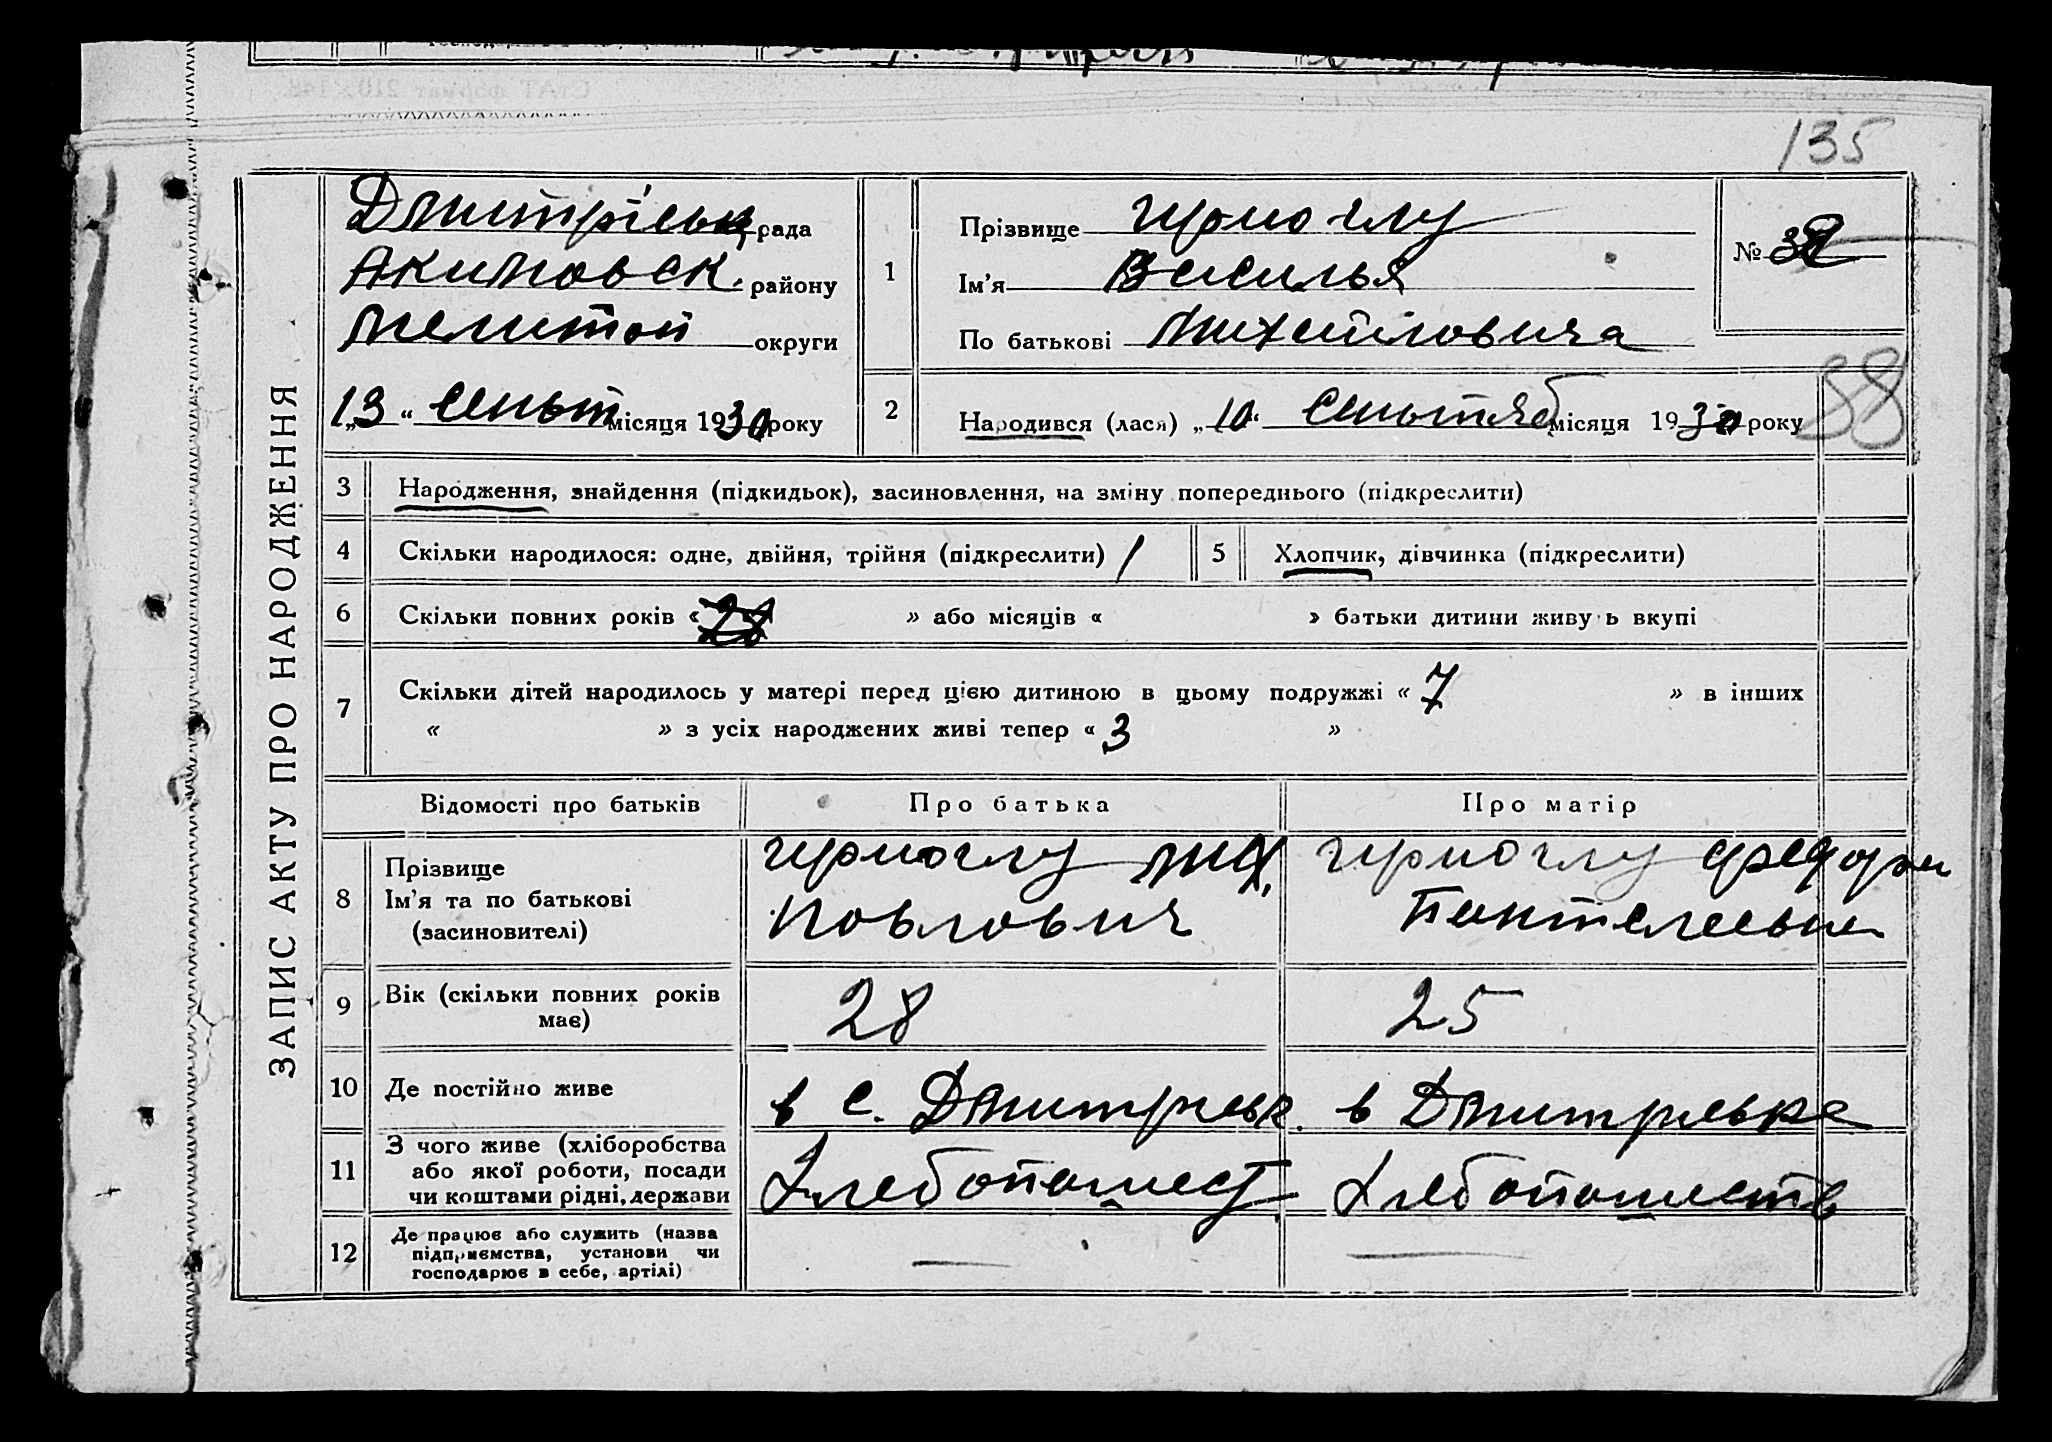 135
ЗАПИС АКТУ ПРО НАРОДЖЕННЯ
Дмитрівськ рада
Акимовск. району
Мелитоп округи
„13“ сеньт місяця 1930 року
1
Прізвище Гурмоглу
Ім'я Василья
По батькові Михайловича
№ 38
88
2
Народився (лася) „10“ сеньтяб місяця 1930 року
3 Народження, знайдення (підкидьок), засиновлення, на зміну попереднього (підкреслити)
4 Скільки народилося: одне, двійня, трійня (підкреслити) 1
5 Хлопчик, дівчинка (підкреслити)
6 Скільки повних років « 28 » або місяців « » батьки дитини живу ь вкупі
7 Скільки дітей народилось у матері перед цією дитиною в цьому подружжі « 7 » в інших
« » з усіх народжених живі тепер « 3 »
Відомості про батьків Про батька Про матір
8 Прізвище
Ім'я та по батькові
(засиновителі)
Гурмоглу Мих.
Повлович
Гурмоглу Федора
Пантелеевна
9 Вік (скільки повних років
має)
28
25
10 Де постійно живе
в с. Дмитриевк.
в Дмитриевке
11 З чого живе (хліборобства
або якої роботи, посади
чи коштами рідні, держави
Хлебопашест
Хлебопашеств
12 Де працює або служить (назва
підприємства, установи чи
господарює в себе, артілі)